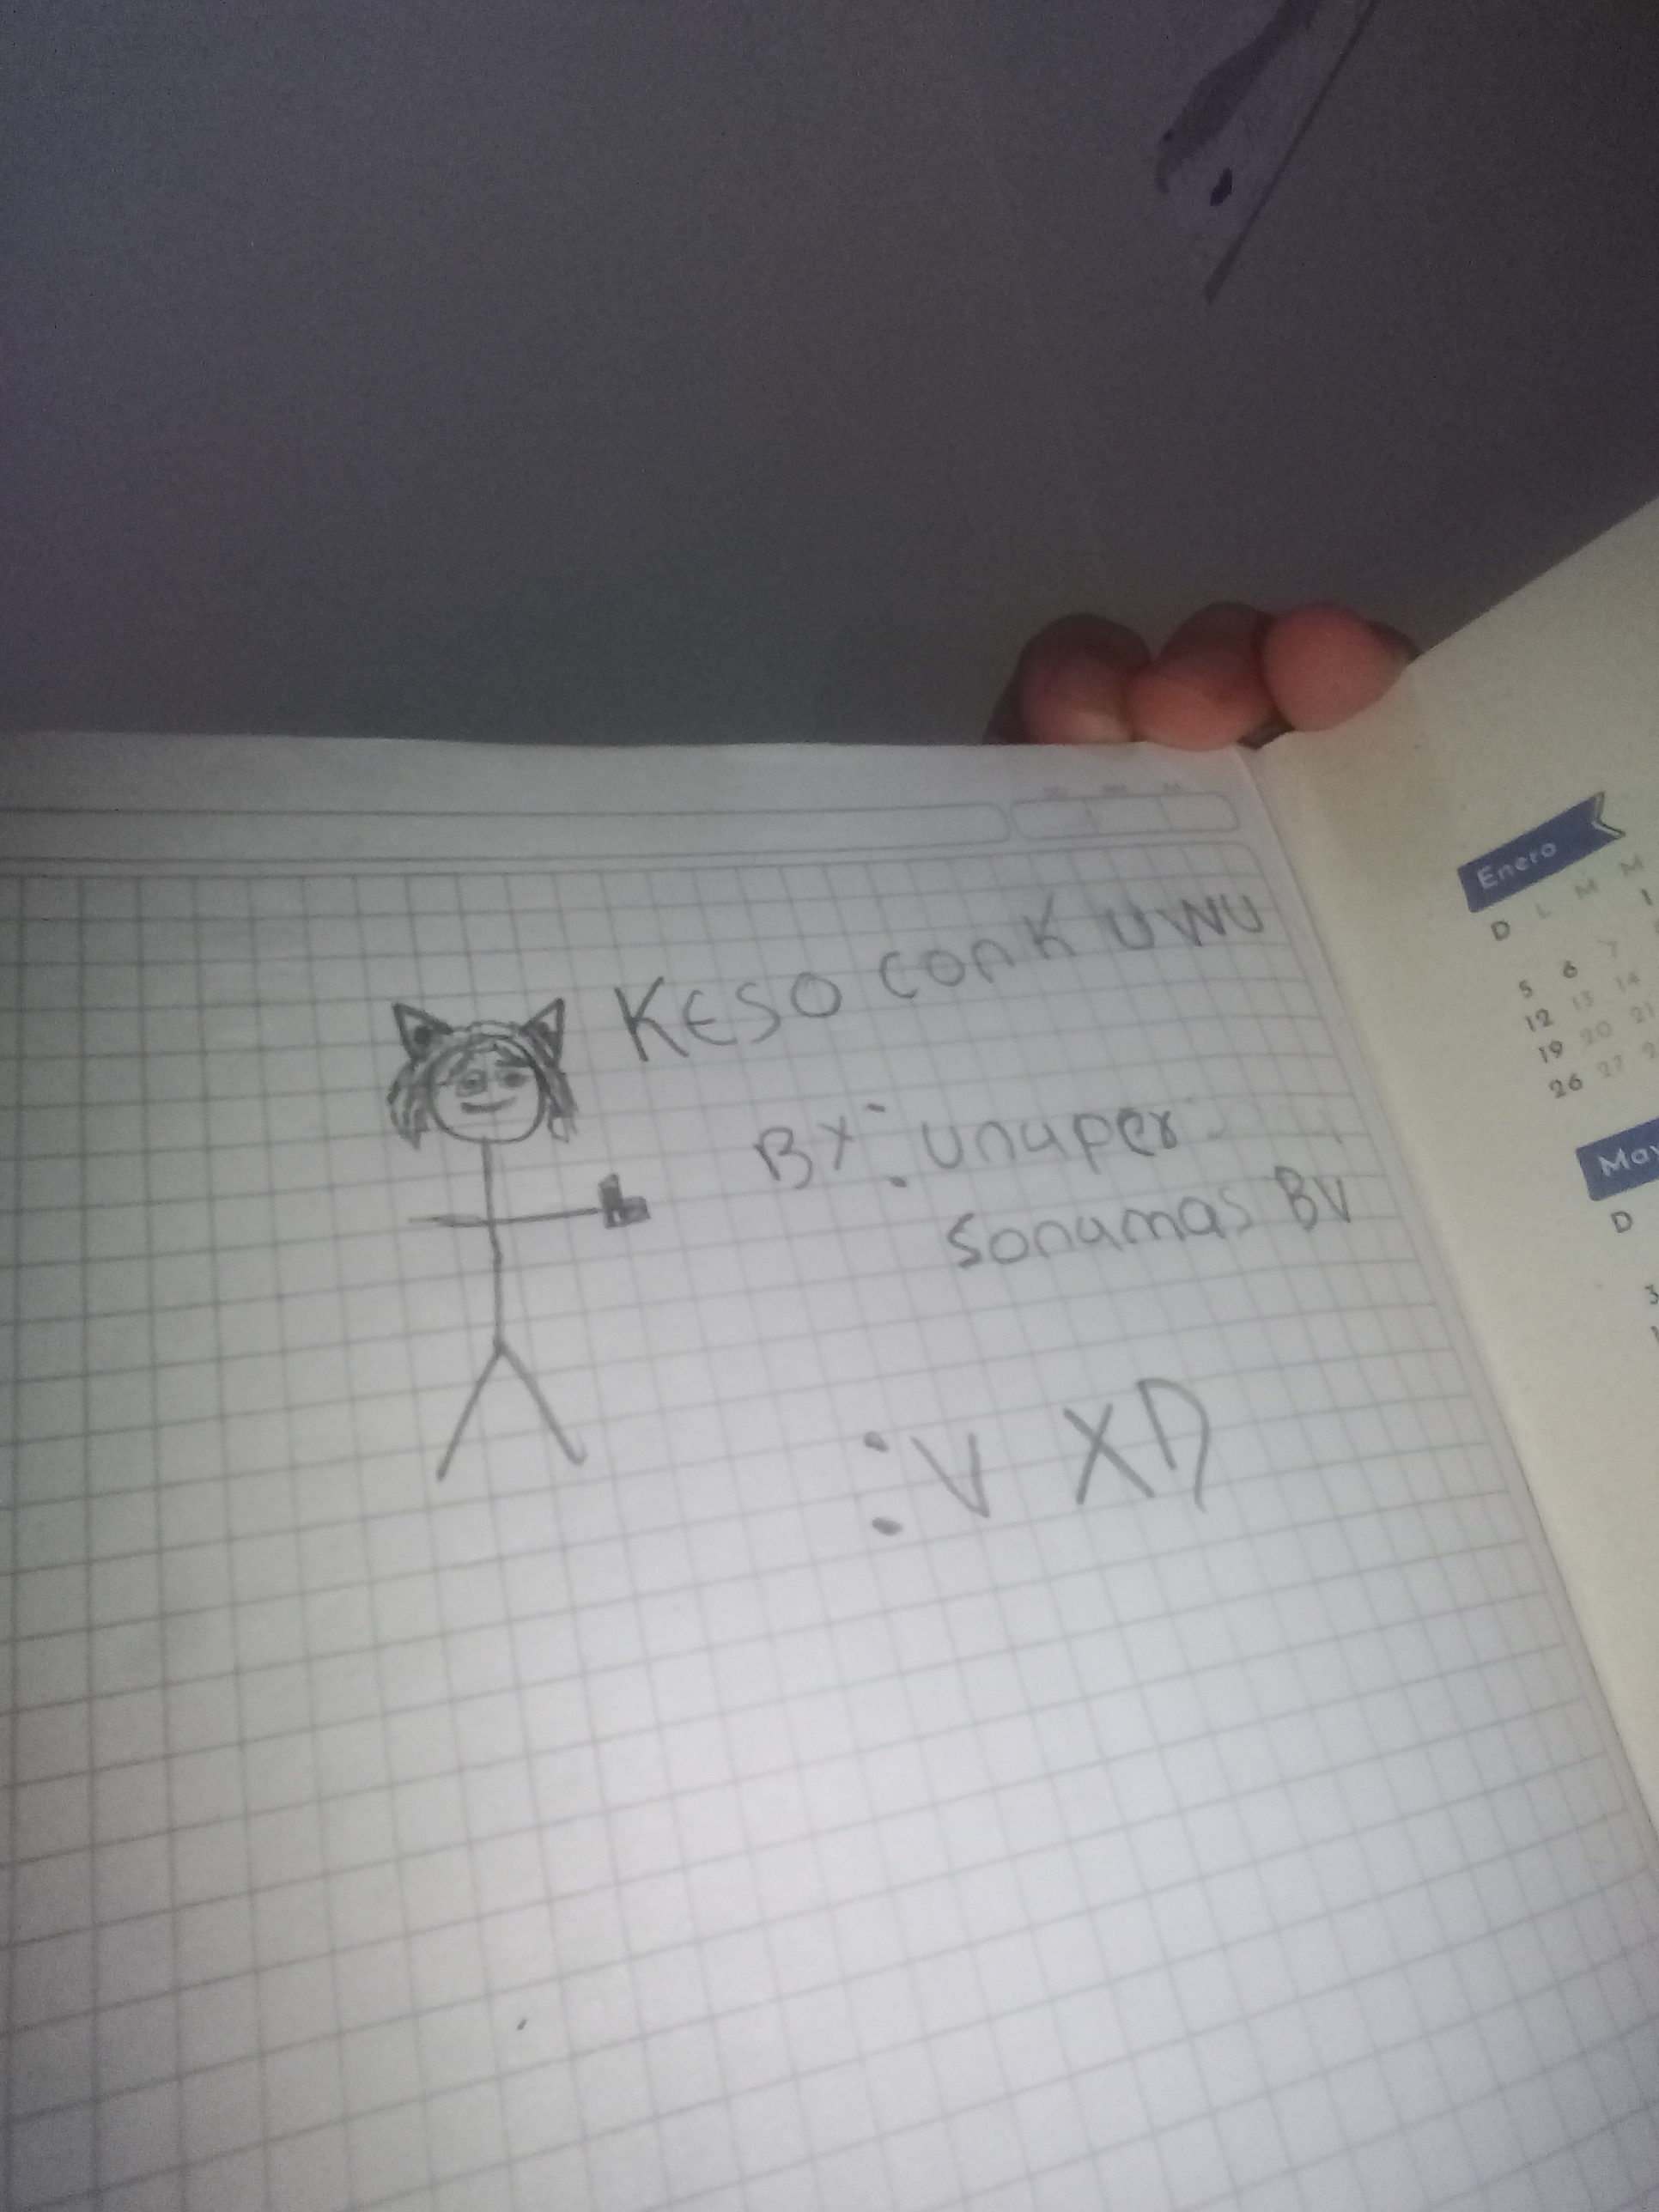 KESO conK UWU
BY: unaper
sonamas BV
:V XD
Enero
D L M M
1
5 6 7
12 13 14
19 20 21
26 27
D